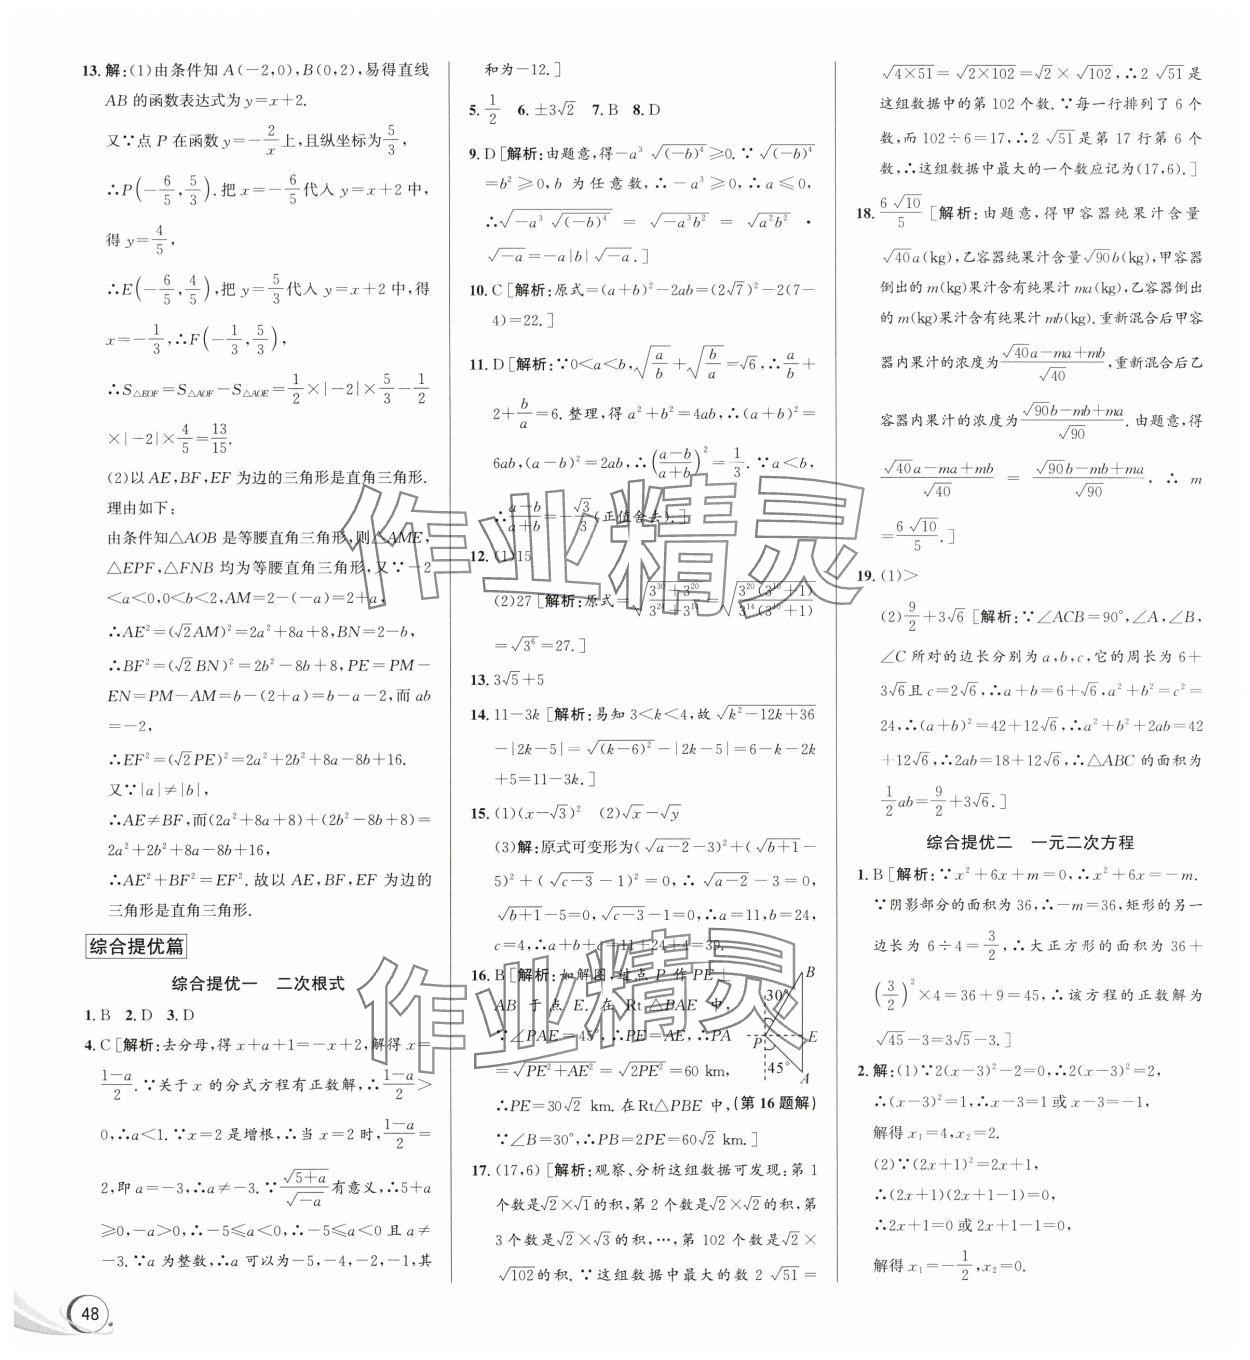 13.解:(1)由条件知 A(-2,0),B(0,2),易得直线
AB 的函数表达式为 y=x+2.
又∵点 P 在函数 y=-2/x 上,且纵坐标为 5/3,
∴P(-6/5,5/3).把 x=-6/5 代入 y=x+2 中,
得 y=4/5,
∴E(-6/5,4/5),把 y=5/3 代入 y=x+2 中,得
x=-1/3,∴F(-1/3,5/3),
∴S△EOF=S△AOF-S△AOE=1/2×|-2|×5/3-1/2
×|-2|×4/5=13/15.
(2)以 AE,BF,EF 为边的三角形是直角三角形.
理由如下:
由条件知△AOB 是等腰直角三角形,则△AME,
△EPF,△FNB 均为等腰直角三角形,又∵-2
<a<0,0<b<2,AM=2-(-a)=2+a,
∴AE²=(√2AM)²=2a²+8a+8,BN=2-b,
∴BF²=(√2BN)²=2b²-8b+8,PE=PM-
EN=PM-AM=b-(2+a)=b-a-2,而 ab
=-2,
∴EF²=(√2PE)²=2a²+2b²+8a-8b+16.
又∵|a|≠|b|,
∴AE≠BF,而(2a²+8a+8)+(2b²-8b+8)=
2a²+2b²+8a-8b+16,
∴AE²+BF²=EF².故以 AE,BF,EF 为边的
三角形是直角三角形.
综合提优篇
综合提优一 二次根式
1.B 2.D 3.D
4.C[解析:去分母,得 x+a+1=-x+2,解得 x=
(1-a)/2.∵关于 x 的分式方程有正数解,∴(1-a)/2>
0,∴a<1.∵x=2 是增根,∴当 x=2 时,(1-a)/2=
2,即 a=-3,∴a≠-3.∵√(5+a)/√(-a)有意义,∴5+a
≥0,-a>0,∴-5≤a<0,∴-5≤a<0 且 a≠
-3.∵a 为整数,∴a 可以为-5,-4,-2,-1,其
和为-12.]
5.1/2 6.±3√2 7.B 8.D
9.D[解析:由题意,得-a³√(-b)⁴≥0.∵√(-b)⁴
=b²≥0,b 为任意数,∴-a³≥0,∴a≤0,
∴√(-a³√(-b)⁴)=√(-a³b²)=√(a²b²)·
√(-a)=-a|b|√(-a).]
10.C[解析:原式=(a+b)²-2ab=(2√7)²-2(7-
4)=22.]
11.D[解析:∵0<a<b,√(a/b)+√(b/a)=√6,∴a/b+
2+b/a=6.整理,得 a²+b²=4ab,∴(a+b)²=
6ab,(a-b)²=2ab,∴((a-b)/(a+b))²=1/3.∵a<b,
∴(a-b)/(a+b)=-√3/3(正值舍去).]
12.(1)15
(2)27[解析:原式=√((3³⁰+3²⁰)/(3²⁴+3¹⁴))=√(3²⁰(3¹⁰+1)/3¹⁴(3¹⁰+1))
=√3⁶=27.]
13.3√5+5
14.11-3k[解析:易知 3<k<4,故√(k²-12k+36)
-|2k-5|=√(k-6)²-|2k-5|=6-k-2k
+5=11-3k.]
15.(1)(x-√3)² (2)√x-√y
(3)解:原式可变形为(√(a-2)-3)²+(√(b+1)-
5)²+(√(c-3)-1)²=0,∴√(a-2)-3=0,
√(b+1)-5=0,√(c-3)-1=0,∴a=11,b=24,
c=4,∴a+b+c=11+24+4=39.
16.B[解析:如解图,过点 P 作 PE⊥
AB 于点 E.在 Rt△BAE 中,
∵∠PAE=45°,∴PE=AE,∴PA
=√(PE²+AE²)=√(2PE²)=60 km,
∴PE=30√2 km.在Rt△PBE 中,
∵∠B=30°,∴PB=2PE=60√2 km.]
B
30°
P
E
45°
A
(第 16 题解)
17.(17,6)[解析:观察、分析这组数据可发现:第 1
个数是√2×√1的积,第 2 个数是√2×√2的积,第
3 个数是√2×√3的积,…,第 102 个数是√2×
√102的积.∵这组数据中最大的数 2√51=
√(4×51)=√(2×102)=√2×√102,∴2√51是
这组数据中的第 102 个数.∵每一行排列了 6 个
数,而 102÷6=17,∴2√51是第 17 行第 6 个
数,∴这组数据中最大的一个数应记为(17,6).]
18.6√10/5[解析:由题意,得甲容器纯果汁含量
√40a(kg),乙容器纯果汁含量√90b(kg),甲容器
倒出的 m(kg)果汁含有纯果汁 ma(kg),乙容器倒出
的 m(kg)果汁含有纯果汁 mb(kg).重新混合后甲容
器内果汁的浓度为(√40a-ma+mb)/√40,重新混合后乙
容器内果汁的浓度为(√90b-mb+ma)/√90.由题意,得
(√40a-ma+mb)/√40=(√90b-mb+ma)/√90,∴m
=6√10/5.]
19.(1)>
(2)9/2+3√6[解析:∵∠ACB=90°,∠A,∠B,
∠C 所对的边长分别为 a,b,c,它的周长为 6+
3√6且 c=2√6,∴a+b=6+√6,a²+b²=c²=
24,∴(a+b)²=42+12√6,∴a²+b²+2ab=42
+12√6,∴2ab=18+12√6,∴△ABC 的面积为
1/2ab=9/2+3√6.]
综合提优二 一元二次方程
1.B[解析:∵x²+6x+m=0,∴x²+6x=-m.
∵阴影部分的面积为 36,∴-m=36,矩形的另一
边长为 6÷4=3/2,∴大正方形的面积为 36+
(3/2)²×4=36+9=45,∴该方程的正数解为
√45-3=3√5-3.]
2.解:(1)∵2(x-3)²-2=0,∴2(x-3)²=2,
∴(x-3)²=1,∴x-3=1 或 x-3=-1,
解得 x₁=4,x₂=2.
(2)∵(2x+1)²=2x+1,
∴(2x+1)(2x+1-1)=0,
∴2x+1=0 或 2x+1-1=0,
解得 x₁=-1/2,x₂=0.
48
作业精灵
作业精灵